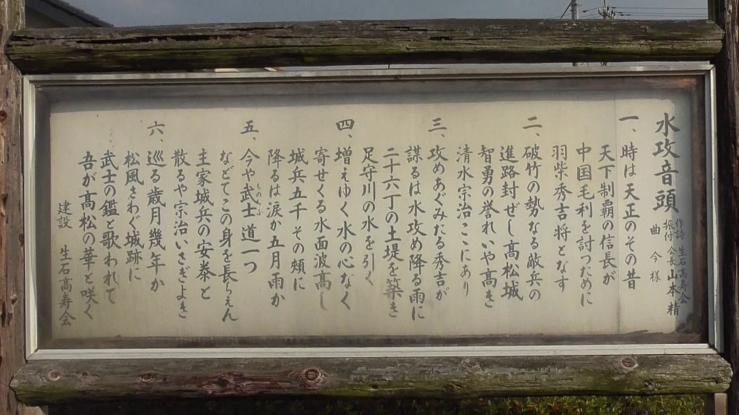 水攻音頭
作詩 生石高寿会
振付 会長 山本精
曲 今様
一、時は天正のその昔
天下制覇の信長が
中国毛利を討つために
羽柴秀吉将となす
二、破竹の勢なる敵兵の
進路封ぜし高松城
智勇の誉れいや高き
清水宗治ここにあり
三、攻めあぐみたる秀吉が
謀るは水攻め降る雨に
二十六丁の土堤を築き
足守川の水を引く
四、増えゆく水の心なく
寄せくる水面波高し
城兵五千その頬に
降るは涙か五月雨か
五、今や武士道一つ
もののふ
などてこの身を長らえん
主家城兵の安泰と
散るや宗治いさぎよき
六、巡る歳月幾年か
松風さわぐ城跡に
武士の鑑と歌われて
吾が高松の華と咲く
建設 生石高寿会